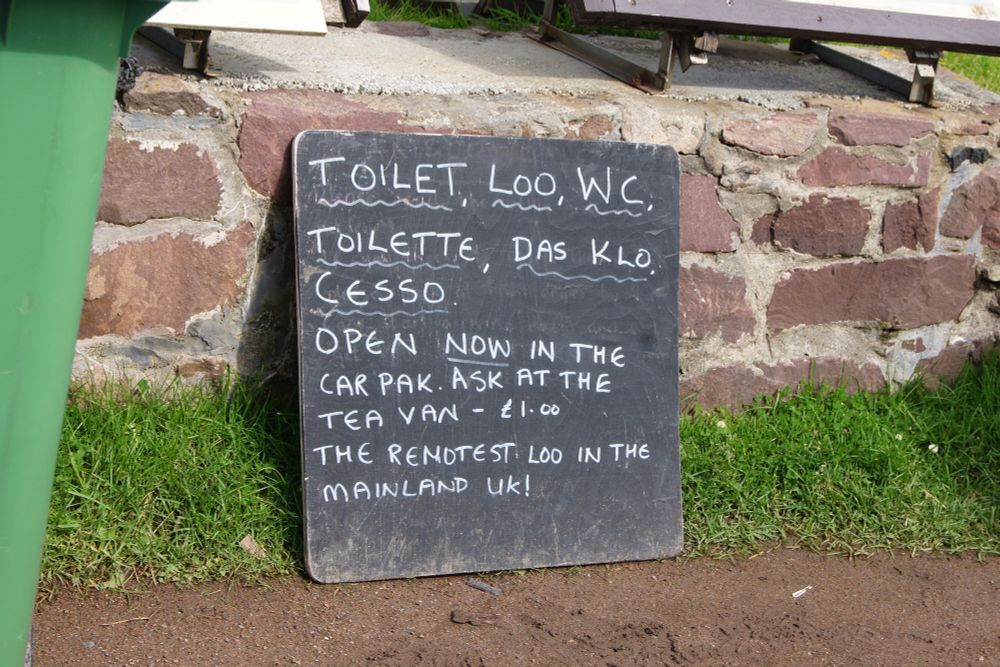 TOILET, LOO, WC,
TOILETTE, DAS KLO,
CESSO.
OPEN NOW IN THE
CAR PAK. ASK AT THE
TEA VAN - £1.00
THE REMOTEST LOO IN THE
MAINLAND UK!